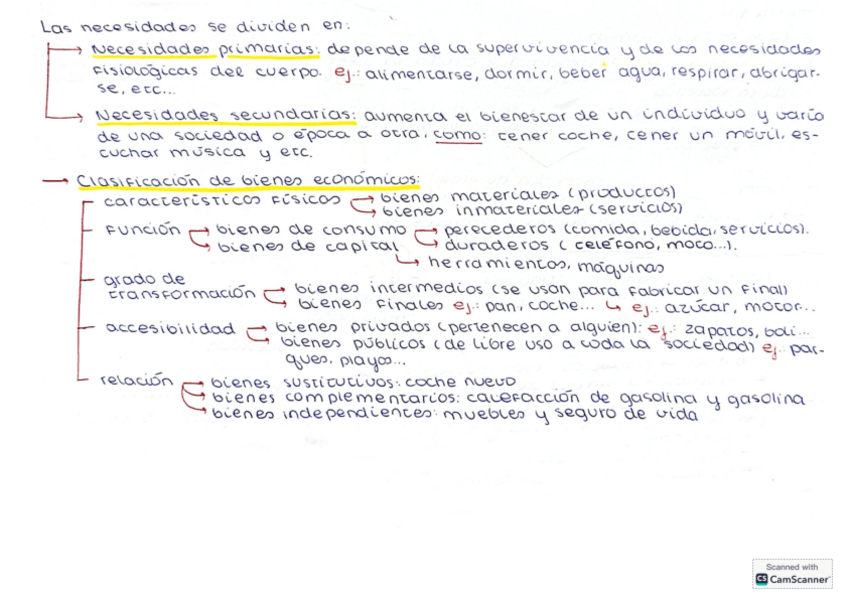 Las necesidades se dividen en:
→ Necesidades primarias: depende de la supervivencia y de las necesidades
fisiológicas del cuerpo. ej.: alimentarse, dormir, beber agua, respirar, abrigar-
se, etc...
→ Necesidades secundarias: aumenta el bienestar de un individuo y varía
de una sociedad o época a otra, como: tener coche, tener un móvil, es-
cuchar música y etc.
→ Clasificación de bienes económicos:
características físicas → bienes materiales (productos)
→ bienes inmateriales (servicios)
función → bienes de consumo → perecederos (comida, bebida, servicios).
→ bienes de capital → duraderos (teléfono, moto...).
↳ herramientas, máquinas
grado de
transformación → bienes intermedios (se usan para fabricar un final)
→ bienes finales ej.: pan, coche... ↳ ej.: azúcar, motor...
accesibilidad → bienes privados (pertenecen a alguien): ej.: zapatos, boli...
→ bienes públicos (de libre uso a toda la sociedad) ej.: par-
ques, playas...
relación → bienes sustitutivos: coche nuevo
→ bienes complementarios: calefacción de gasolina y gasolina
→ bienes independientes: muebles y seguro de vida
Scanned with
CS CamScanner